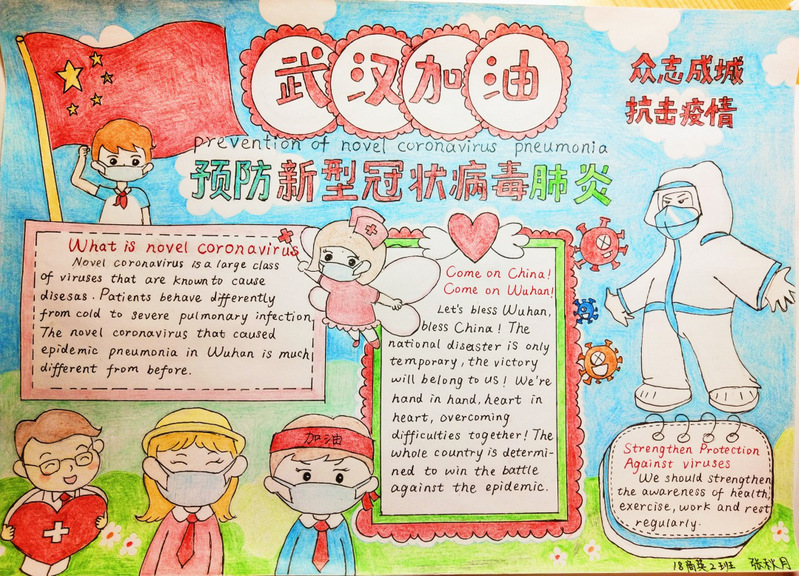 武汉加油
众志成城
抗击疫情
prevention of novel coronavirus pneumonia
预防新型冠状病毒肺炎
What is novel coronavirus
Novel coronavirus is a large class
of viruses that are known to cause
disesas. Patients behave differently
from cold to severe pulmonary infection.
The novel coronavirus that caused
epidemic pneumonia in Wuhan is much
different from before.
Come on China!
Come on Wuhan!
Let's bless Wuhan,
bless China! The
national disaster is only
temporary, the victory
will belong to us! We're
hand in hand, heart in
heart, overcoming
difficulties together! The
whole country is determi-
ned to win the battle
against the epidemic.
加油
Strengthen Protection
Against viruses
We should strengthen
the awareness of health,
exercise, work and rest
regularly.
18商英2班 张秋月